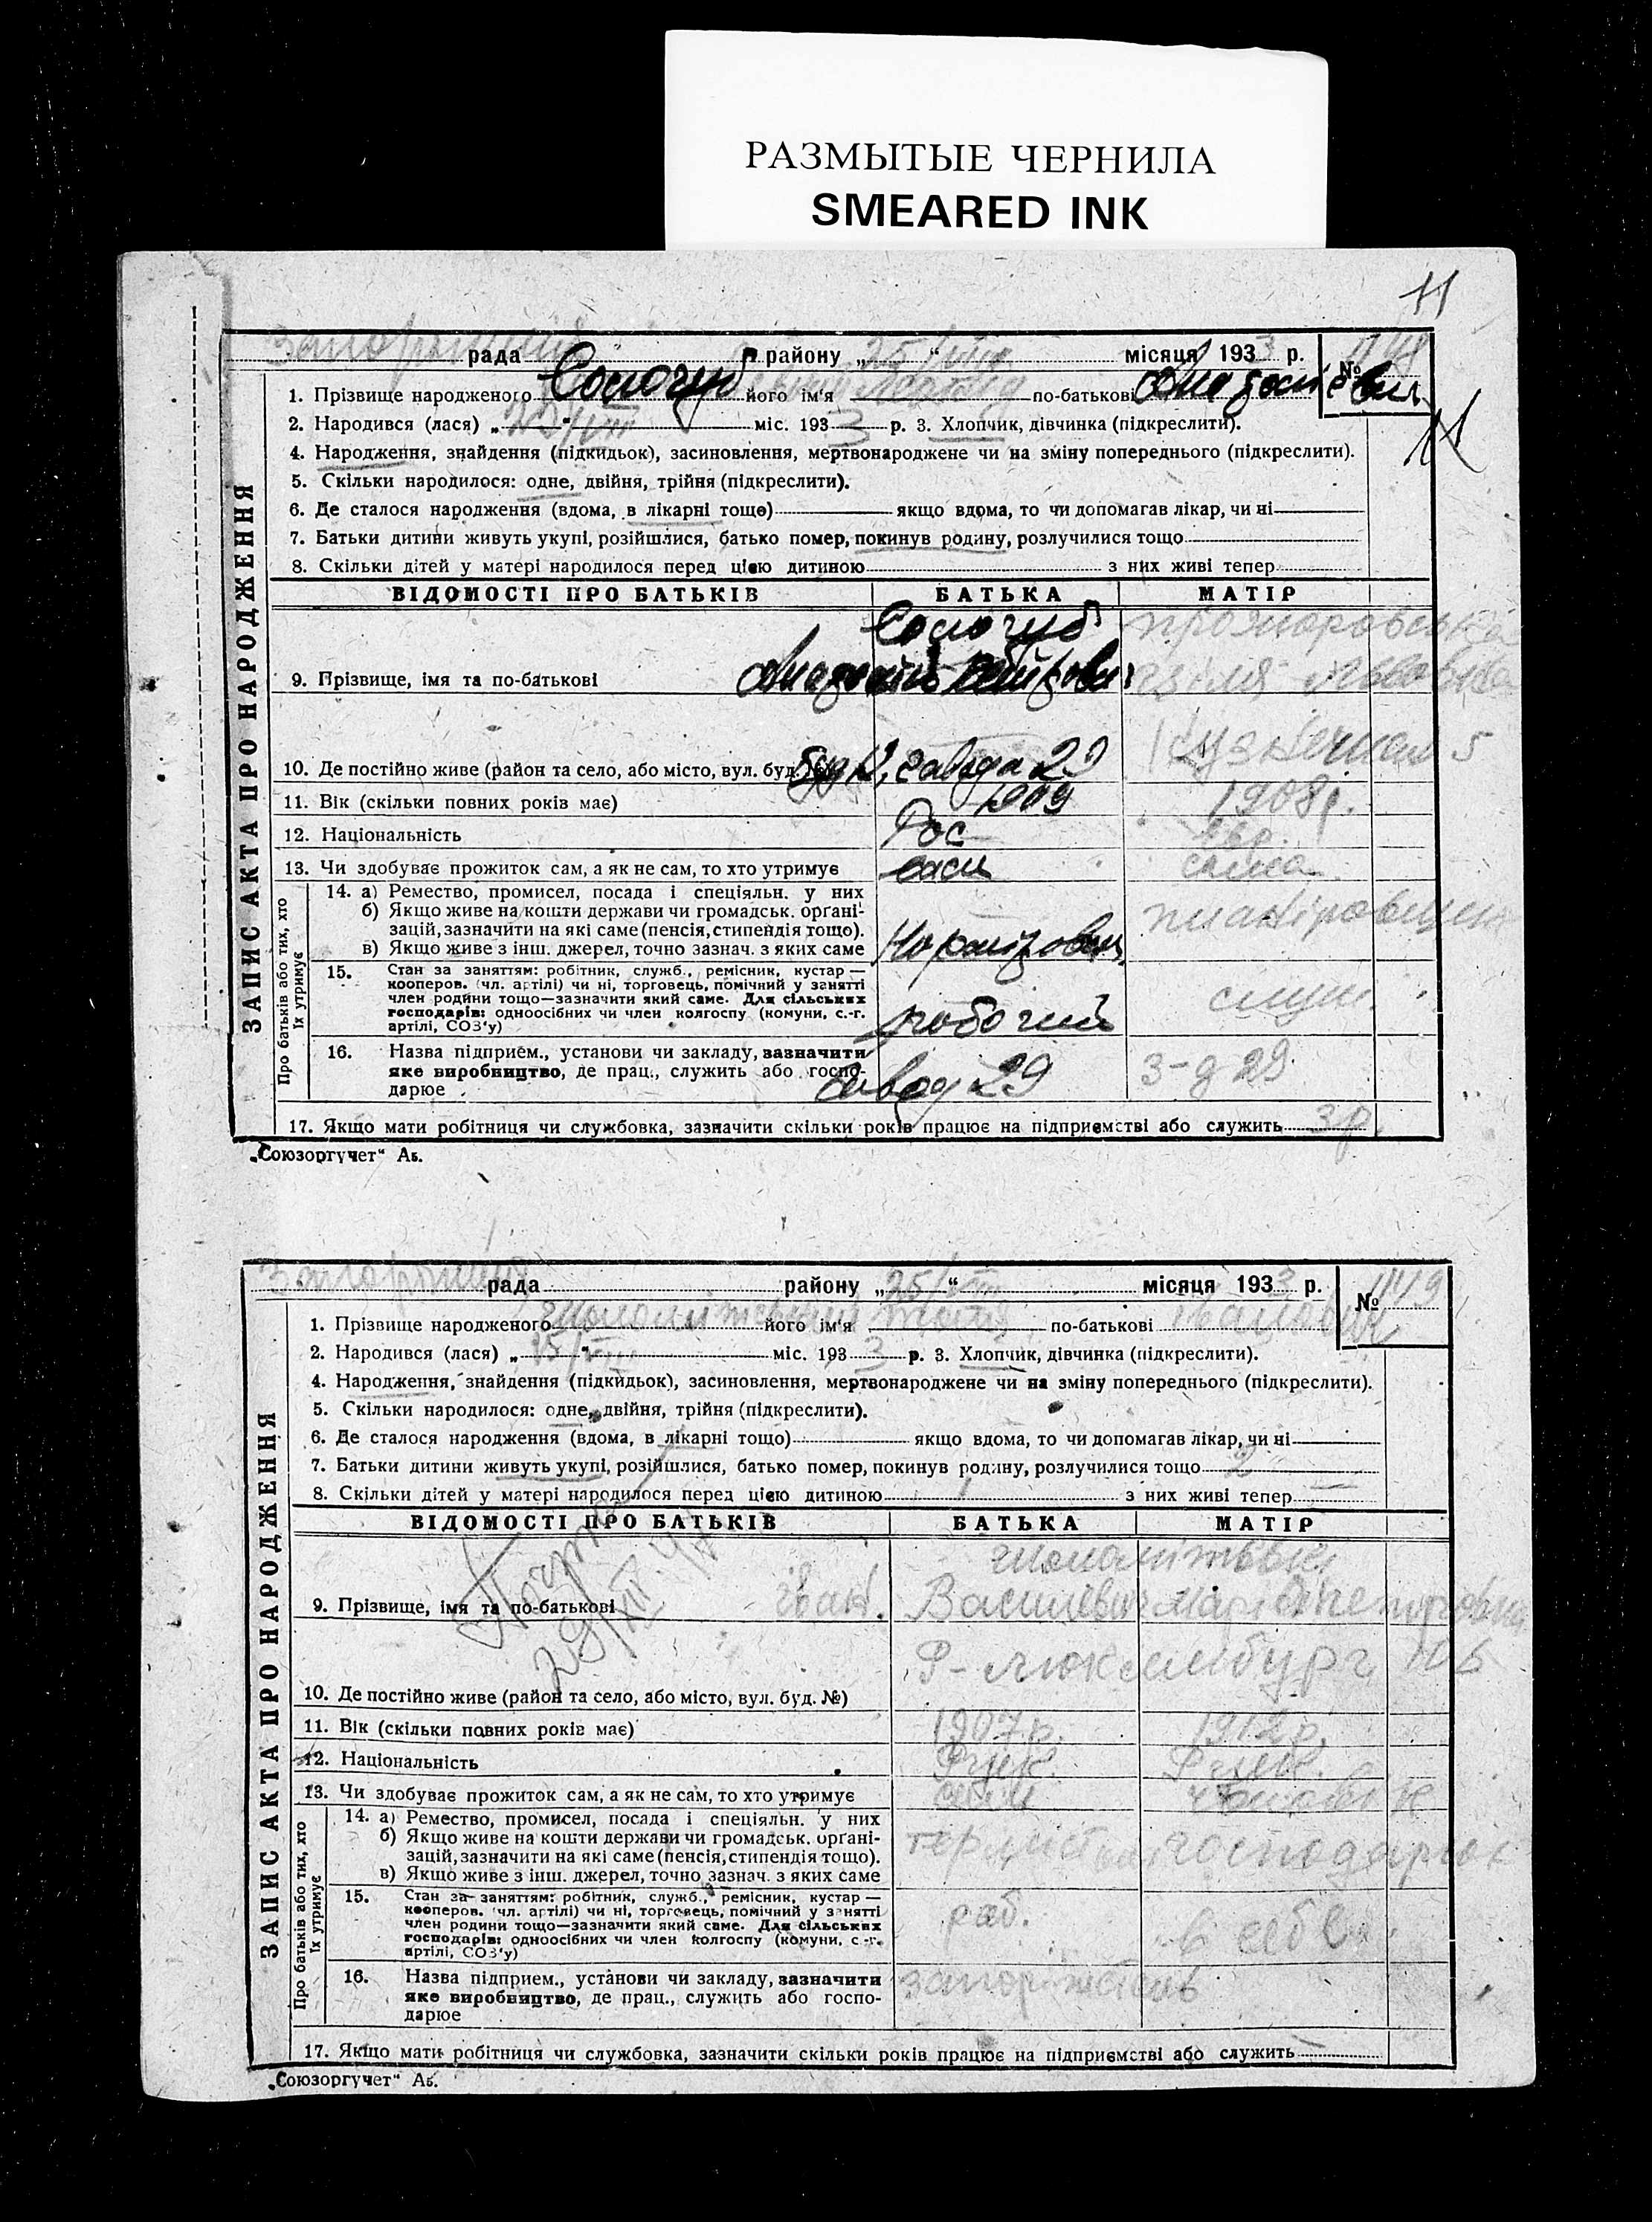 РАЗМЫТЫЕ ЧЕРНИЛА
SMEARED INK
11
рада району „25/VIII“ місяця 1933 р. № 1148
1. Прізвище народженого Сологуб його ім'я по-батькові
2. Народився (лася) „ “ міс. 1933 р. 3. Хлопчик, дівчинка (підкреслити).
4. Народження, знайдення (підкидьок), засиновлення, мертвонароджене чи на зміну попереднього (підкреслити).
5. Скільки народилося: одне, двійня, трійня (підкреслити).
6. Де сталося народження (вдома, в лікарні тощо) якщо вдома, то чи допомагав лікар, чи ні
7. Батьки дитини живуть укупі, розійшлися, батько помер, покинув родину, розлучилися тощо
8. Скільки дітей у матері народилося перед цією дитиною з них живі тепер
ЗАПИС АКТА ПРО НАРОДЖЕННЯ
ВІДОМОСТІ ПРО БАТЬКІВ БАТЬКА МАТІР
Сологуб
9. Прізвище, імя та по-батькові
10. Де постійно живе (район та село, або місто, вул. буд. №) завода 29 Кузнечная 5
11. Вік (скільки повних років має) 1909 1908р.
12. Національність Рос євр.
13. Чи здобуває прожиток сам, а як не сам, то хто утримує сам сама
Про батьків або тих, хто їх утримує
14. а) Ремество, промисел, посада і спеціяльн. у них
б) Якщо живе на кошти держави чи громадськ. органі-
зацій, зазначити на які саме (пенсія, стипендія тощо).
в) Якщо живе з інш. джерел, точно зазнач. з яких саме
15. Стан за заняттям: робітник, служб., ремісник, кустар —
кооперов. (чл. артілі) чи ні, торговець, помічний у занятті
член родини тощо—зазначити який саме. Для сільських
господарів: одноосібних чи член колгоспу (комуни, с.-г.
артілі, СОЗ'у) робочий служ.
16. Назва підприєм., установи чи закладу, зазначити
яке виробництво, де прац., служить або госпо-
дарює завод 29 з-д 29
17. Якщо мати робітниця чи службовка, зазначити скільки років працює на підприємстві або служить 3 р.
„Союзоргучет“ Аь.
рада району „25/VIII“ місяця 1933 р. № 1149
1. Прізвище народженого його ім'я по-батькові Іванович
2. Народився (лася) „15/VIII“ міс. 1933 р. 3. Хлопчик, дівчинка (підкреслити).
4. Народження, знайдення (підкидьок), засиновлення, мертвонароджене чи на зміну попереднього (підкреслити).
5. Скільки народилося: одне, двійня, трійня (підкреслити).
6. Де сталося народження (вдома, в лікарні тощо) якщо вдома, то чи допомагав лікар, чи ні
7. Батьки дитини живуть укупі, розійшлися, батько помер, покинув родину, розлучилися тощо 2
8. Скільки дітей у матері народилося перед цією дитиною з них живі тепер
ЗАПИС АКТА ПРО НАРОДЖЕННЯ
ВІДОМОСТІ ПРО БАТЬКІВ БАТЬКА МАТІР
9. Прізвище, імя та по-батькові Іван Васильевич Марія
Р-люксембург
10. Де постійно живе (район та село, або місто, вул. буд. №)
11. Вік (скільки повних років має) 1907р. 1912р.
12. Національність
13. Чи здобуває прожиток сам, а як не сам, то хто утримує сам чоловік
Про батьків або тих, хто їх утримує
14. а) Ремество, промисел, посада і спеціяльн. у них
б) Якщо живе на кошти держави чи громадськ. органі-
зацій, зазначити на які саме (пенсія, стипендія тощо).
в) Якщо живе з інш. джерел, точно зазнач. з яких саме
15. Стан за заняттям: робітник, служб., ремісник, кустар —
кооперов. (чл. артілі) чи ні, торговець, помічний у занятті
член родини тощо—зазначити який саме. Для сільських
господарів: одноосібних чи член колгоспу (комуни, с.-г.
артілі, СОЗ'у) раб. в себе
16. Назва підприєм., установи чи закладу, зазначити
яке виробництво, де прац., служить або госпо-
дарює
17. Якщо мати робітниця чи службовка, зазначити скільки років працює на підприємстві або служить
„Союзоргучет“ Аь.